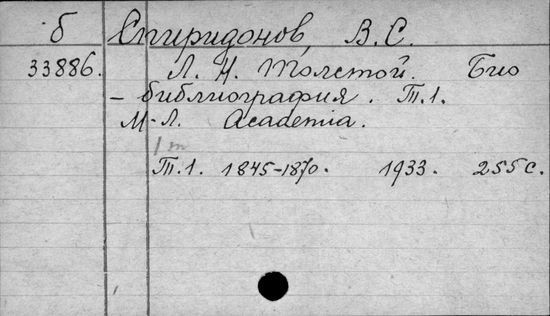 б Спиридонов, В.С.
33886. Л. Н. Толстой. Био
- библиография. Т.1.
М-Л. Academia.
1 т
Т.1. 1845-1870. 1933. 255 с.